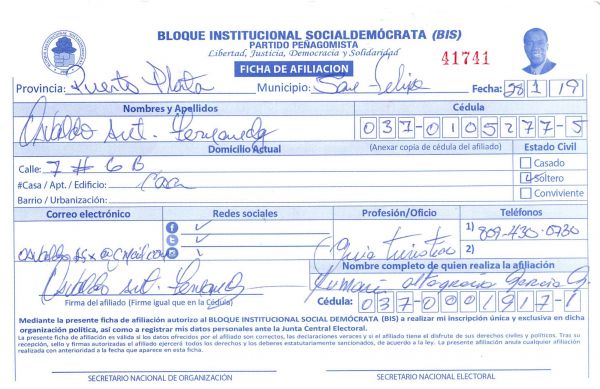 BLOQUE INSTITUCIONAL SOCIALDEMÓCRATA (BIS)
PARTIDO PEÑAGOMISTA
Libertad, Justicia, Democracia y Solidaridad
FICHA DE AFILIACION
41741
Provincia: Puerto Plata Municipio: San Felipe Fecha: 28 1 19
Nombres y Apellidos Cédula
Osvaldo Ant. Fernandez 037-0105277-5
Domicilio Actual (Anexar copia de cédula del afiliado) Estado Civil
Calle: 7 # 6 B
Casado
#Casa / Apt. / Edificio: Casa
Soltero
Barrio / Urbanización:
Conviviente
Correo electrónico Redes sociales Profesión/Oficio Teléfonos
1) 809-430-0730
2)
Guia turistico
Nombre completo de quien realiza la afiliación
Osvaldo Ant. Fernandez altagracia Garcia G.
Firma del afiliado (Firme igual que en la Cédula) Cédula: 037-0001917-1
Mediante la presente ficha de afiliación autorizo al BLOQUE INSTITUCIONAL SOCIAL DEMÓCRATA (BIS) a realizar mi inscripción única y exclusiva en dicha
organización política, así como a registrar mis datos personales ante la Junta Central Electoral.
La presente ficha de afiliación es válida si los datos ofrecidos por el afiliado son correctos, las declaraciones veraces y si el afiliado tiene el disfrute de sus derechos civiles y políticos. Tras su
recepción, sello y firmas autorizadas el afiliado ejercerá todos los derechos y los deberes estatutariamente sancionados, de acuerdo a la ley. La presente afiliación anula cualquier afiliación
realizada con anterioridad a la fecha que aparece en esta ficha.
SECRETARIO NACIONAL DE ORGANIZACIÓN SECRETARIO NACIONAL ELECTORAL